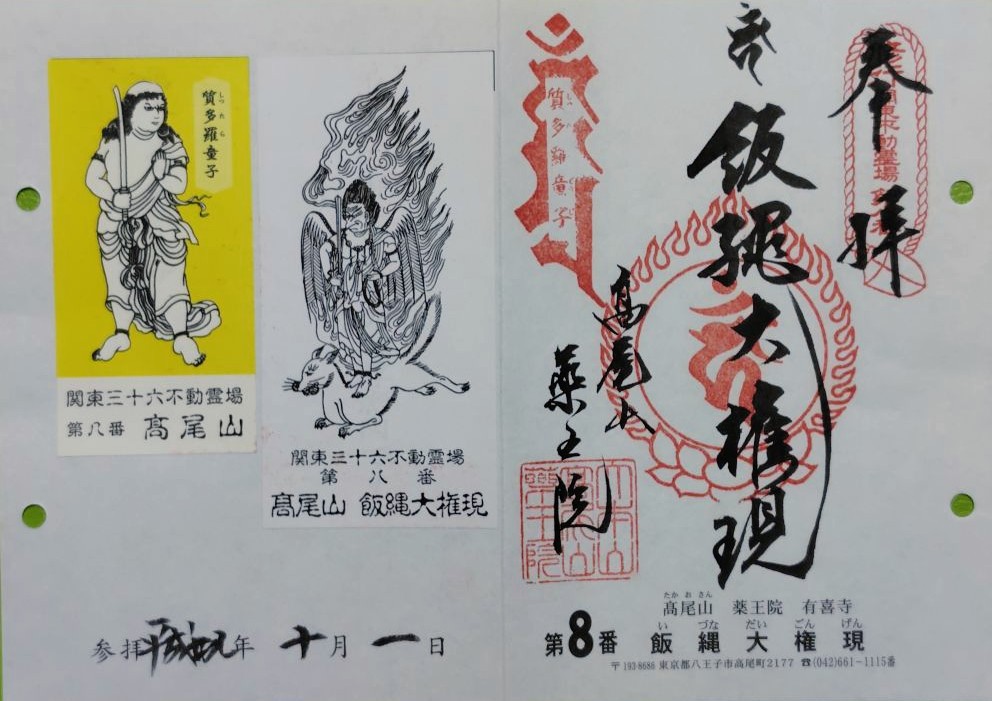 質多羅童子
しつたら
関東三十六不動霊場
第八番 髙尾山
関東三十六不動霊場
第八番
髙尾山 飯縄大権現
参拝平成 年 十月一日
奉拝
飯縄大権現
高尾山
薬王院
質多羅童子
たかおさん
髙尾山 薬王院 有喜寺
いづなだいごんげん
第8番 飯縄大権現
〒193-8686 東京都八王子市高尾町2177 ☎(042)661-1115番